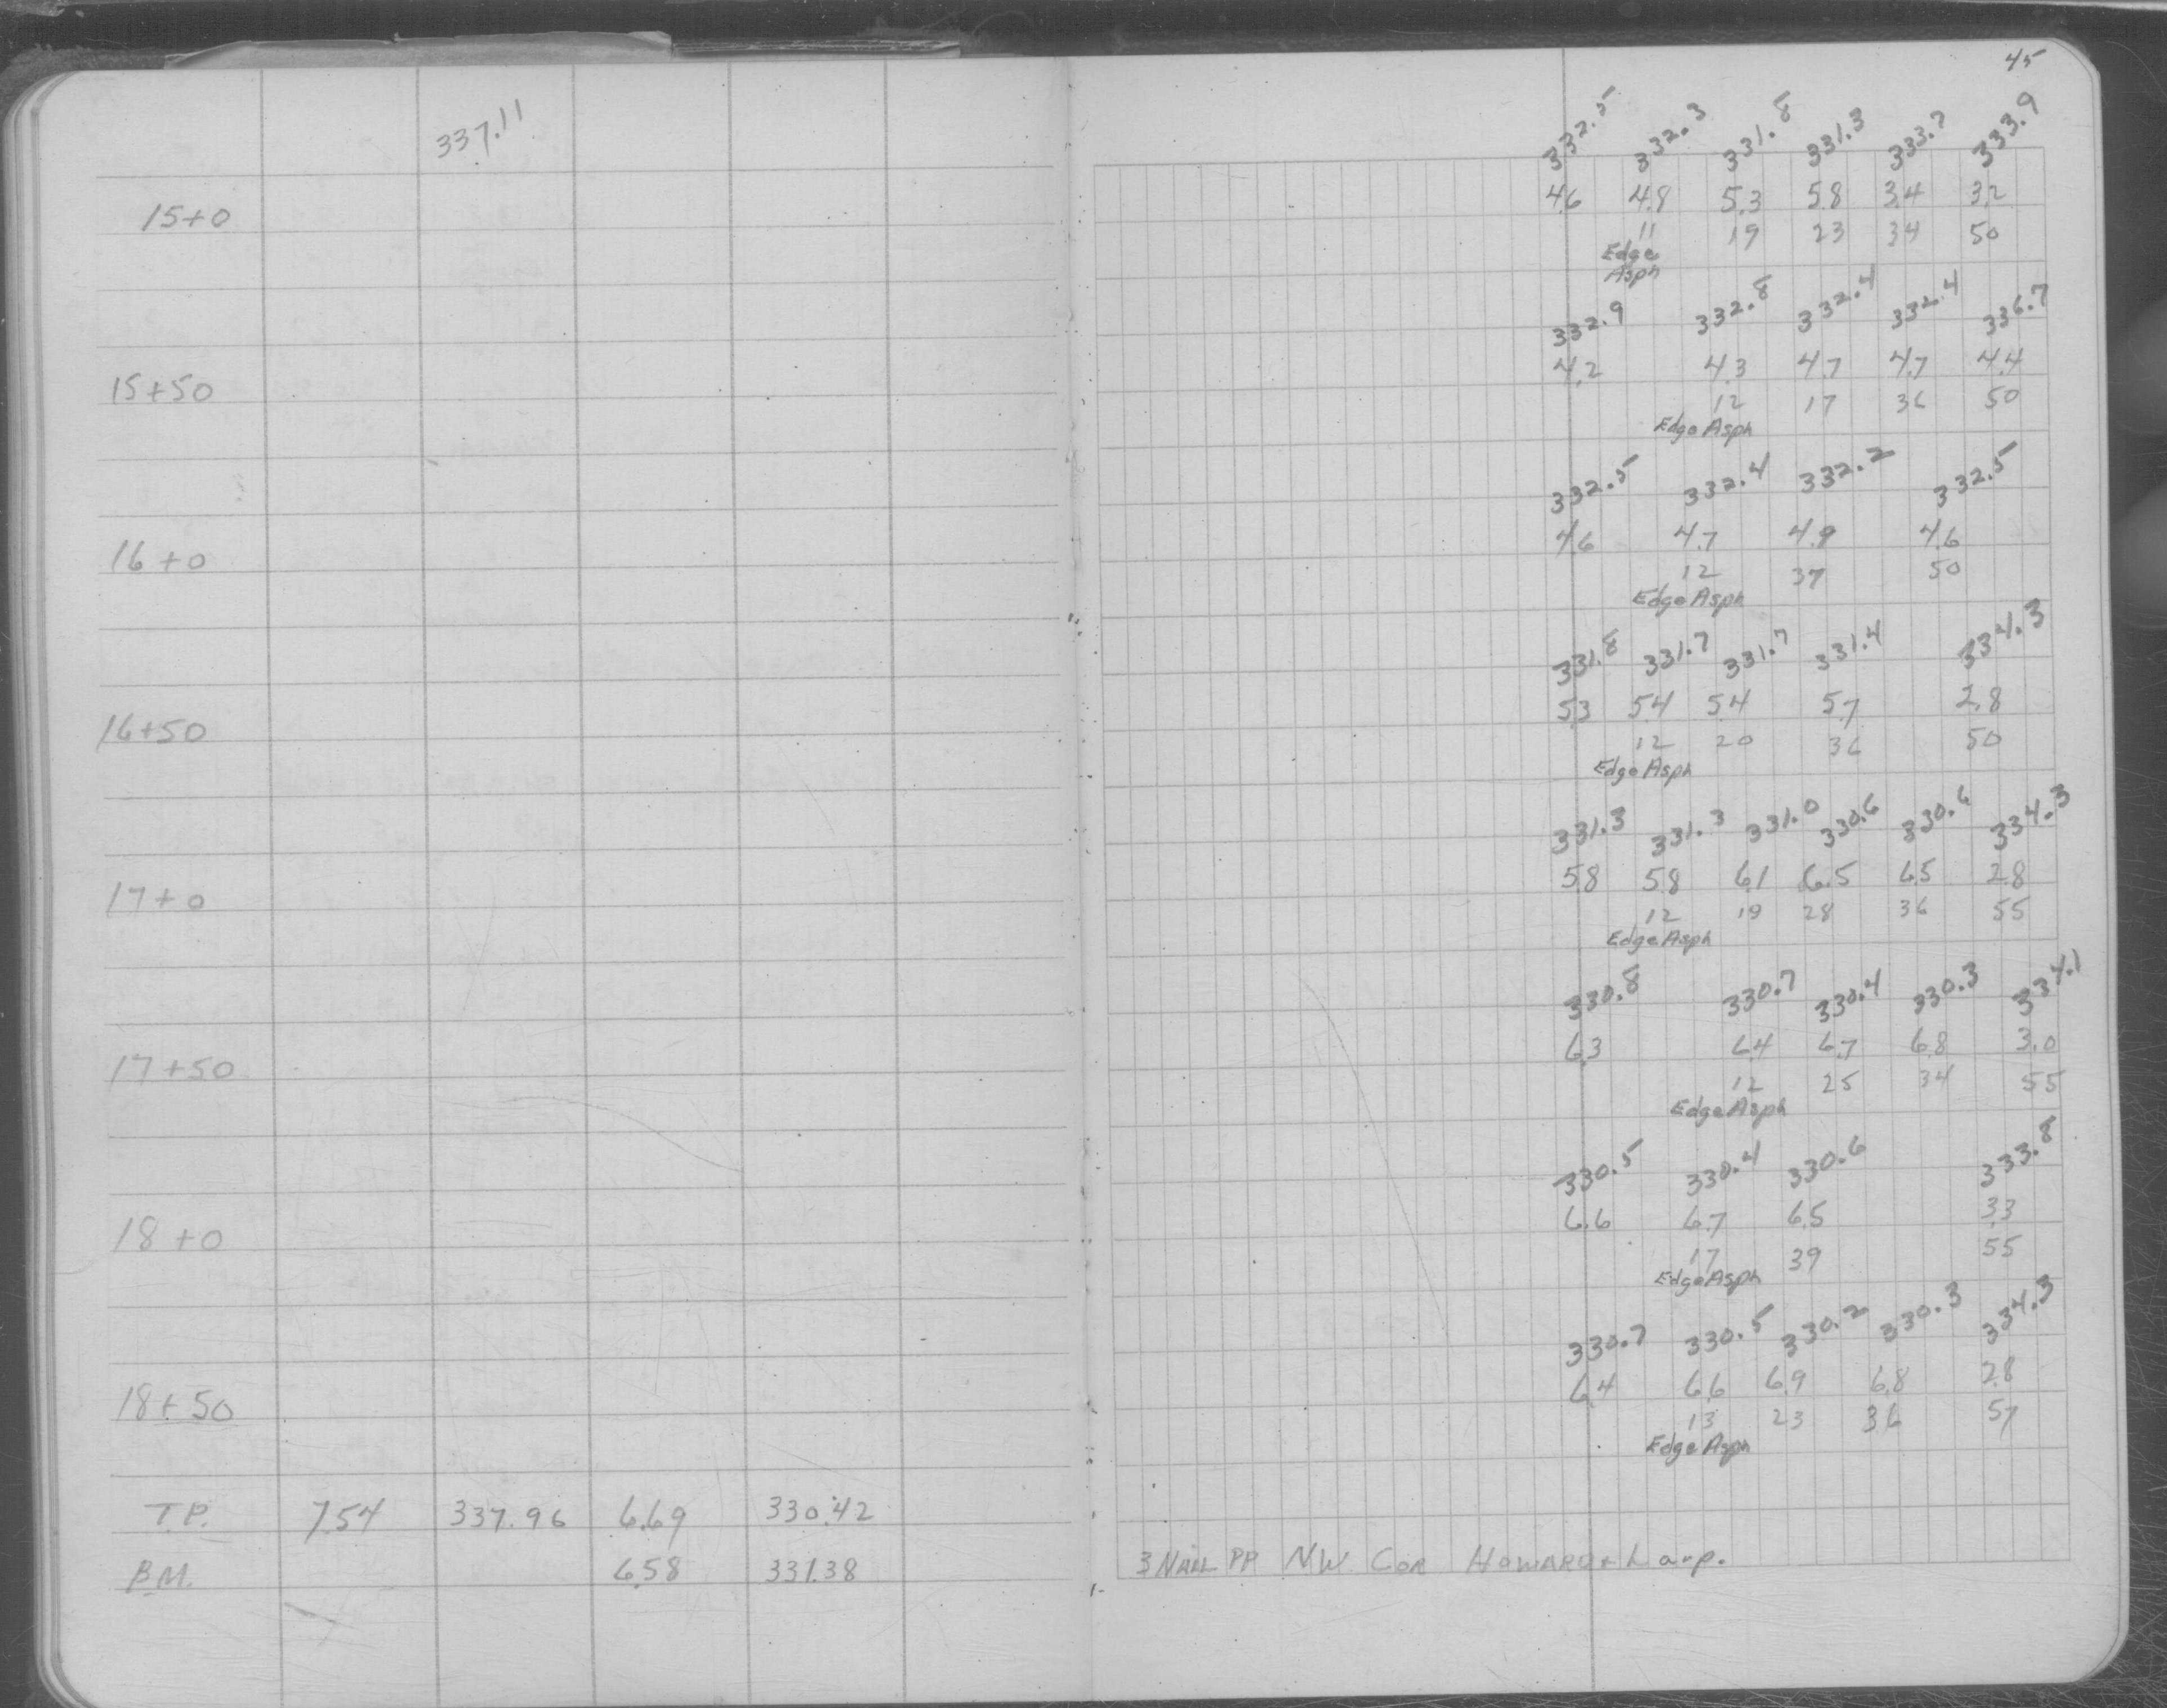 45
337.11
332.5 332.3 331.8 331.3 333.7 333.9
15+0 4.6 4.8 5.3 5.8 3.4 3.2
11 19 23 34 50
Edge
Asph
332.9 332.8 332.4 332.4 336.7
15+50 4.2 4.3 4.7 4.7 4.4
12 17 36 50
Edge Asph
332.5 332.4 332.2 332.5
16+0 4.6 4.7 4.9 4.6
12 37 50
Edge Asph
331.8 331.7 331.7 331.4 334.3
16+50 5.3 5.4 5.4 5.7 2.8
12 20 36 50
Edge Asph
331.3 331.3 331.0 330.6 330.6 334.3
17+0 5.8 5.8 6.1 6.5 6.5 2.8
12 19 28 36 55
Edge Asph
330.8 330.7 330.4 330.3 334.1
17+50 6.3 6.4 6.7 6.8 3.0
12 25 34 55
Edge Asph
330.5 330.4 330.6 333.8
18+0 6.6 6.7 6.5 3.3
17 39 55
Edge Asph
330.7 330.5 330.2 330.3 334.3
18+50 6.4 6.6 6.9 6.8 2.8
13 23 36 57
Edge Asph
T.P. 7.54 337.96 6.69 330.42
B.M. 6.58 331.38 3 NAIL PP NW COR HOWARD +